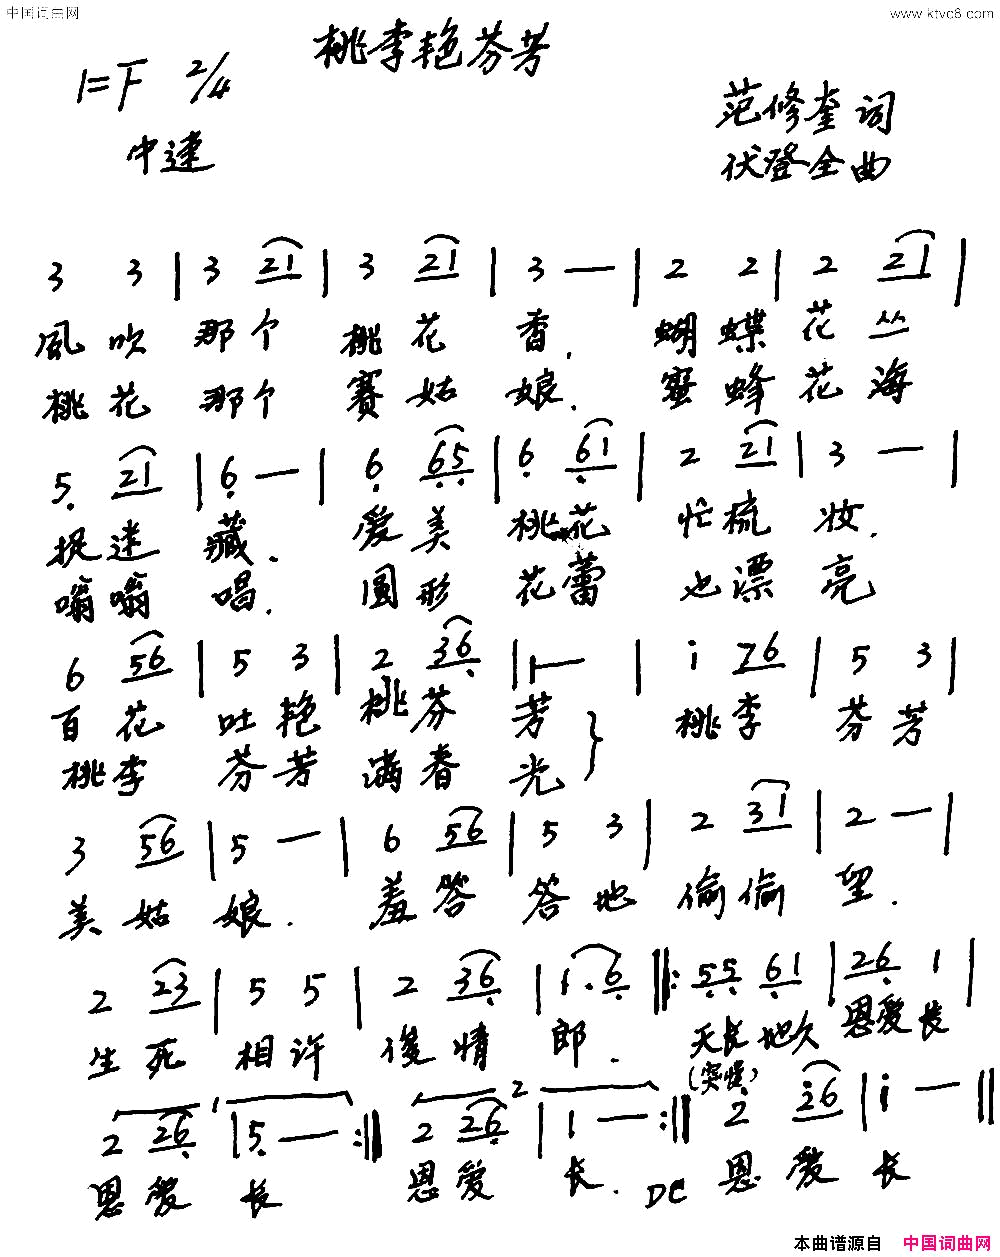 中国词曲网 www.ktvc8.com
桃李艳芬芳
1=F 2/4
中速
范修奎 词
伏登全 曲
3 3 | 3 21 | 3 21 | 3 — | 2 2 | 2 21 |
風吹 那个 桃花 香. 蝴蝶 花丛
桃花 那个 赛姑 娘. 蜜蜂 花海
5 21 | 6 — | 6 65 | 6 61 | 2 21 | 3 — |
捉迷 藏. 爱美 桃花 忙梳 妆.
嗡嗡 唱. 圆形 花蕾 也漂 亮
6 56 | 5 3 | 2 36 | 1 — | i 76 | 5 3 |
百花 吐艳 桃芬 芳 } 桃李 芬芳
桃李 芬芳 满春 光
3 56 | 5 — | 6 56 | 5 3 | 2 31 | 2 — |
美姑 娘. 羞答 答地 偷偷 望.
2 23 | 5 5 | 2 36 | 1. 6 :||: 55 61 | 26 1 |
生死 相许 情郎. 天长地久 恩爱长
(突慢)
2 26 | 5 — :|| 2 26 | 1 — :|| 2 i6 | i — ||
恩爱 长 恩爱 长. DC 恩爱 长
本曲谱源自 中国词曲网